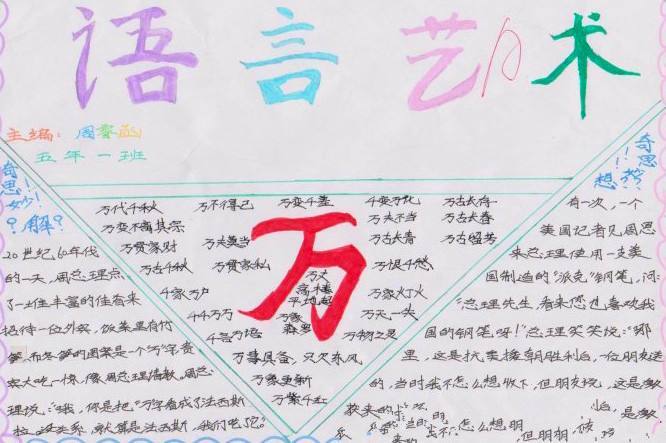 语言艺术
主编：周睿涵
五年一班
奇思妙解
20世纪60年代
的一天，周总理点
了一道丰富的佳肴来
招待一位外宾，饭菜里有竹
笋，而冬笋的图案是一个"万"字，贵
宾大吃一惊，像周总理请教。周总
理说："哦，你是把"万"字看成了法西斯
啦。没关系，就算是法西斯，我们吃了它。"
万代千秋 万不得已 万变千差 千变万化 万古长存
万变不离其宗 万夫不当 万古长春
万贯家财 万夫莫当 万古长青 万古留芳
万古千秋 万贯家私 万恨千愁
千家万户 万丈高楼平地起 万家灯火
千千万万 万象森罗 万无一失
万
千言万语 万物之灵
万事具备，只欠东风
万象更新
万紫千红
奇思妙想
有一次，一个
美国记者见周恩
来总理使用一支美
国制造的"派克"钢笔，问：
"总理先生，看来您也喜欢我
国的钢笔呀！"总理笑笑说："那
里，这是抗美援朝胜利后，一位朋友送
的，当时我不怎么想收下，但朋友说，这是